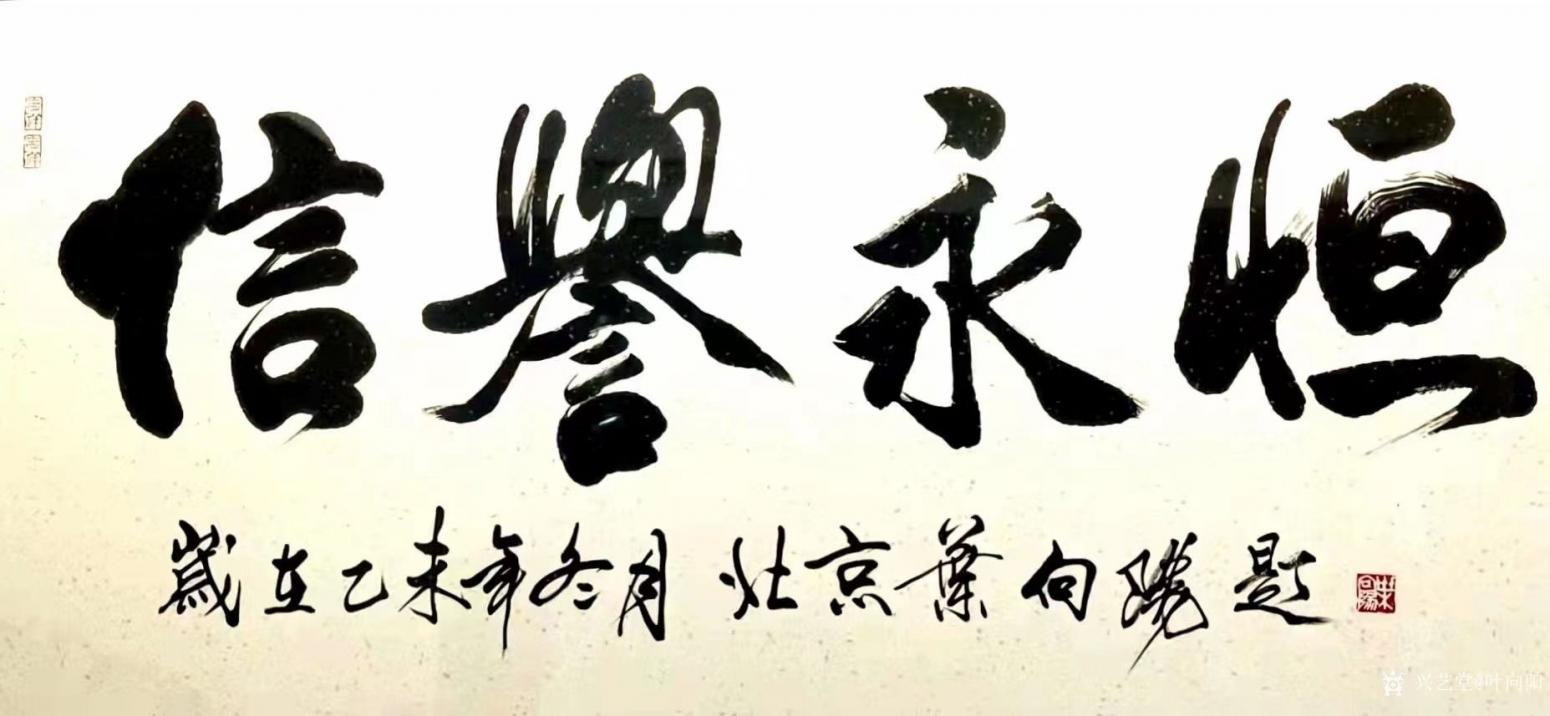 信譽永恒
歲在乙未年冬月 北京葉向陽題
葉向陽
兴艺堂@叶向阳